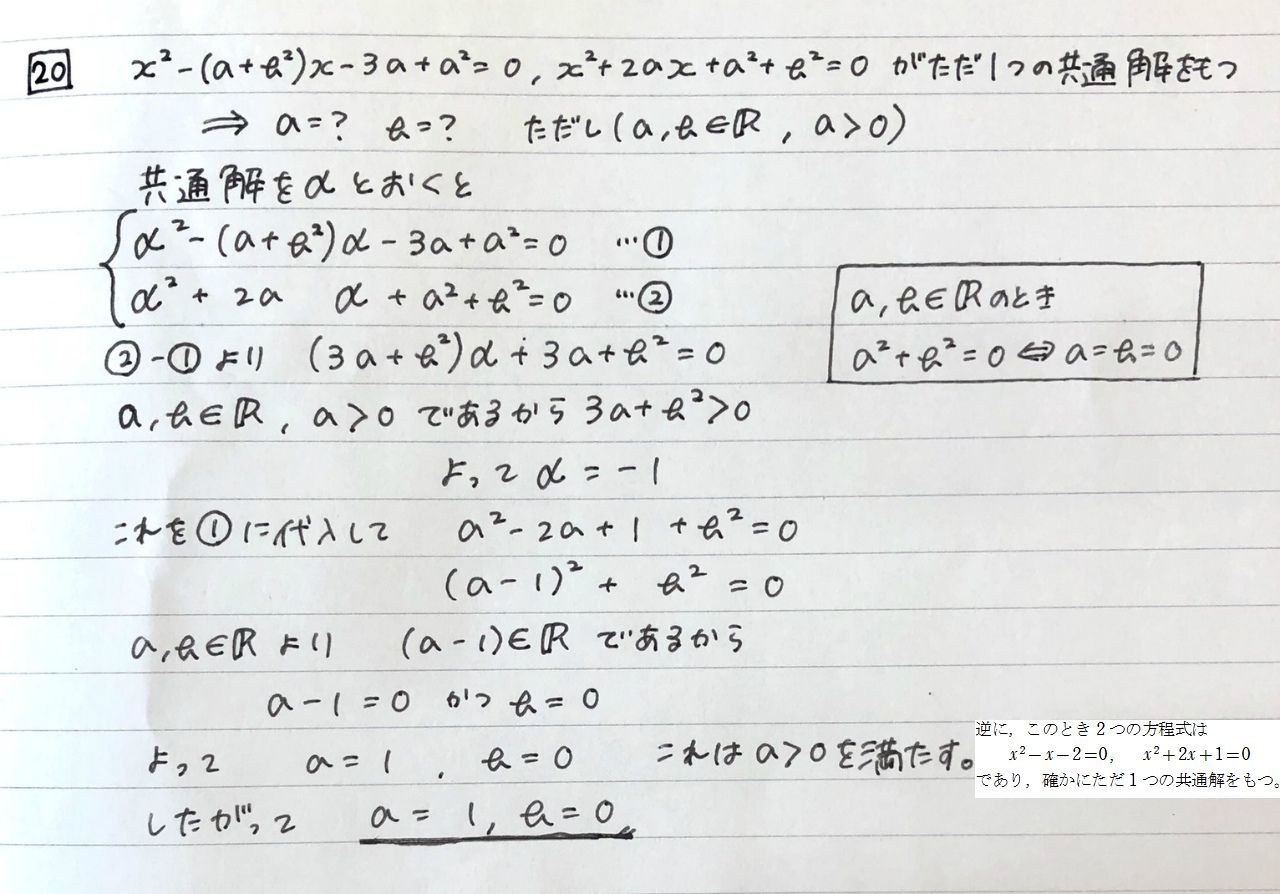 20 x²-(a+k²)x-3a+a²=0, x²+2ax+a²+k²=0 がただ1つの共通解をもつ
⇒ a=? k=? ただし(a,k∈ℝ, a>0)
共通解をαとおくと
α²-(a+k²)α-3a+a²=0 …①
α²+2a α+a²+k²=0 …②
②-①より (3a+k²)α+3a+k²=0
a,k∈ℝのとき
a²+k²=0⇔a=k=0
a,k∈ℝ, a>0 であるから 3a+k²>0
よって α=-1
これを①に代入して a²-2a+1+k²=0
(a-1)²+k²=0
a,k∈ℝより (a-1)∈ℝ であるから
a-1=0 かつ k=0
よって a=1, k=0 これはa>0を満たす。
逆に，このとき2つの方程式は
x²-x-2=0, x²+2x+1=0
であり，確かにただ1つの共通解をもつ。
したがって a=1, k=0